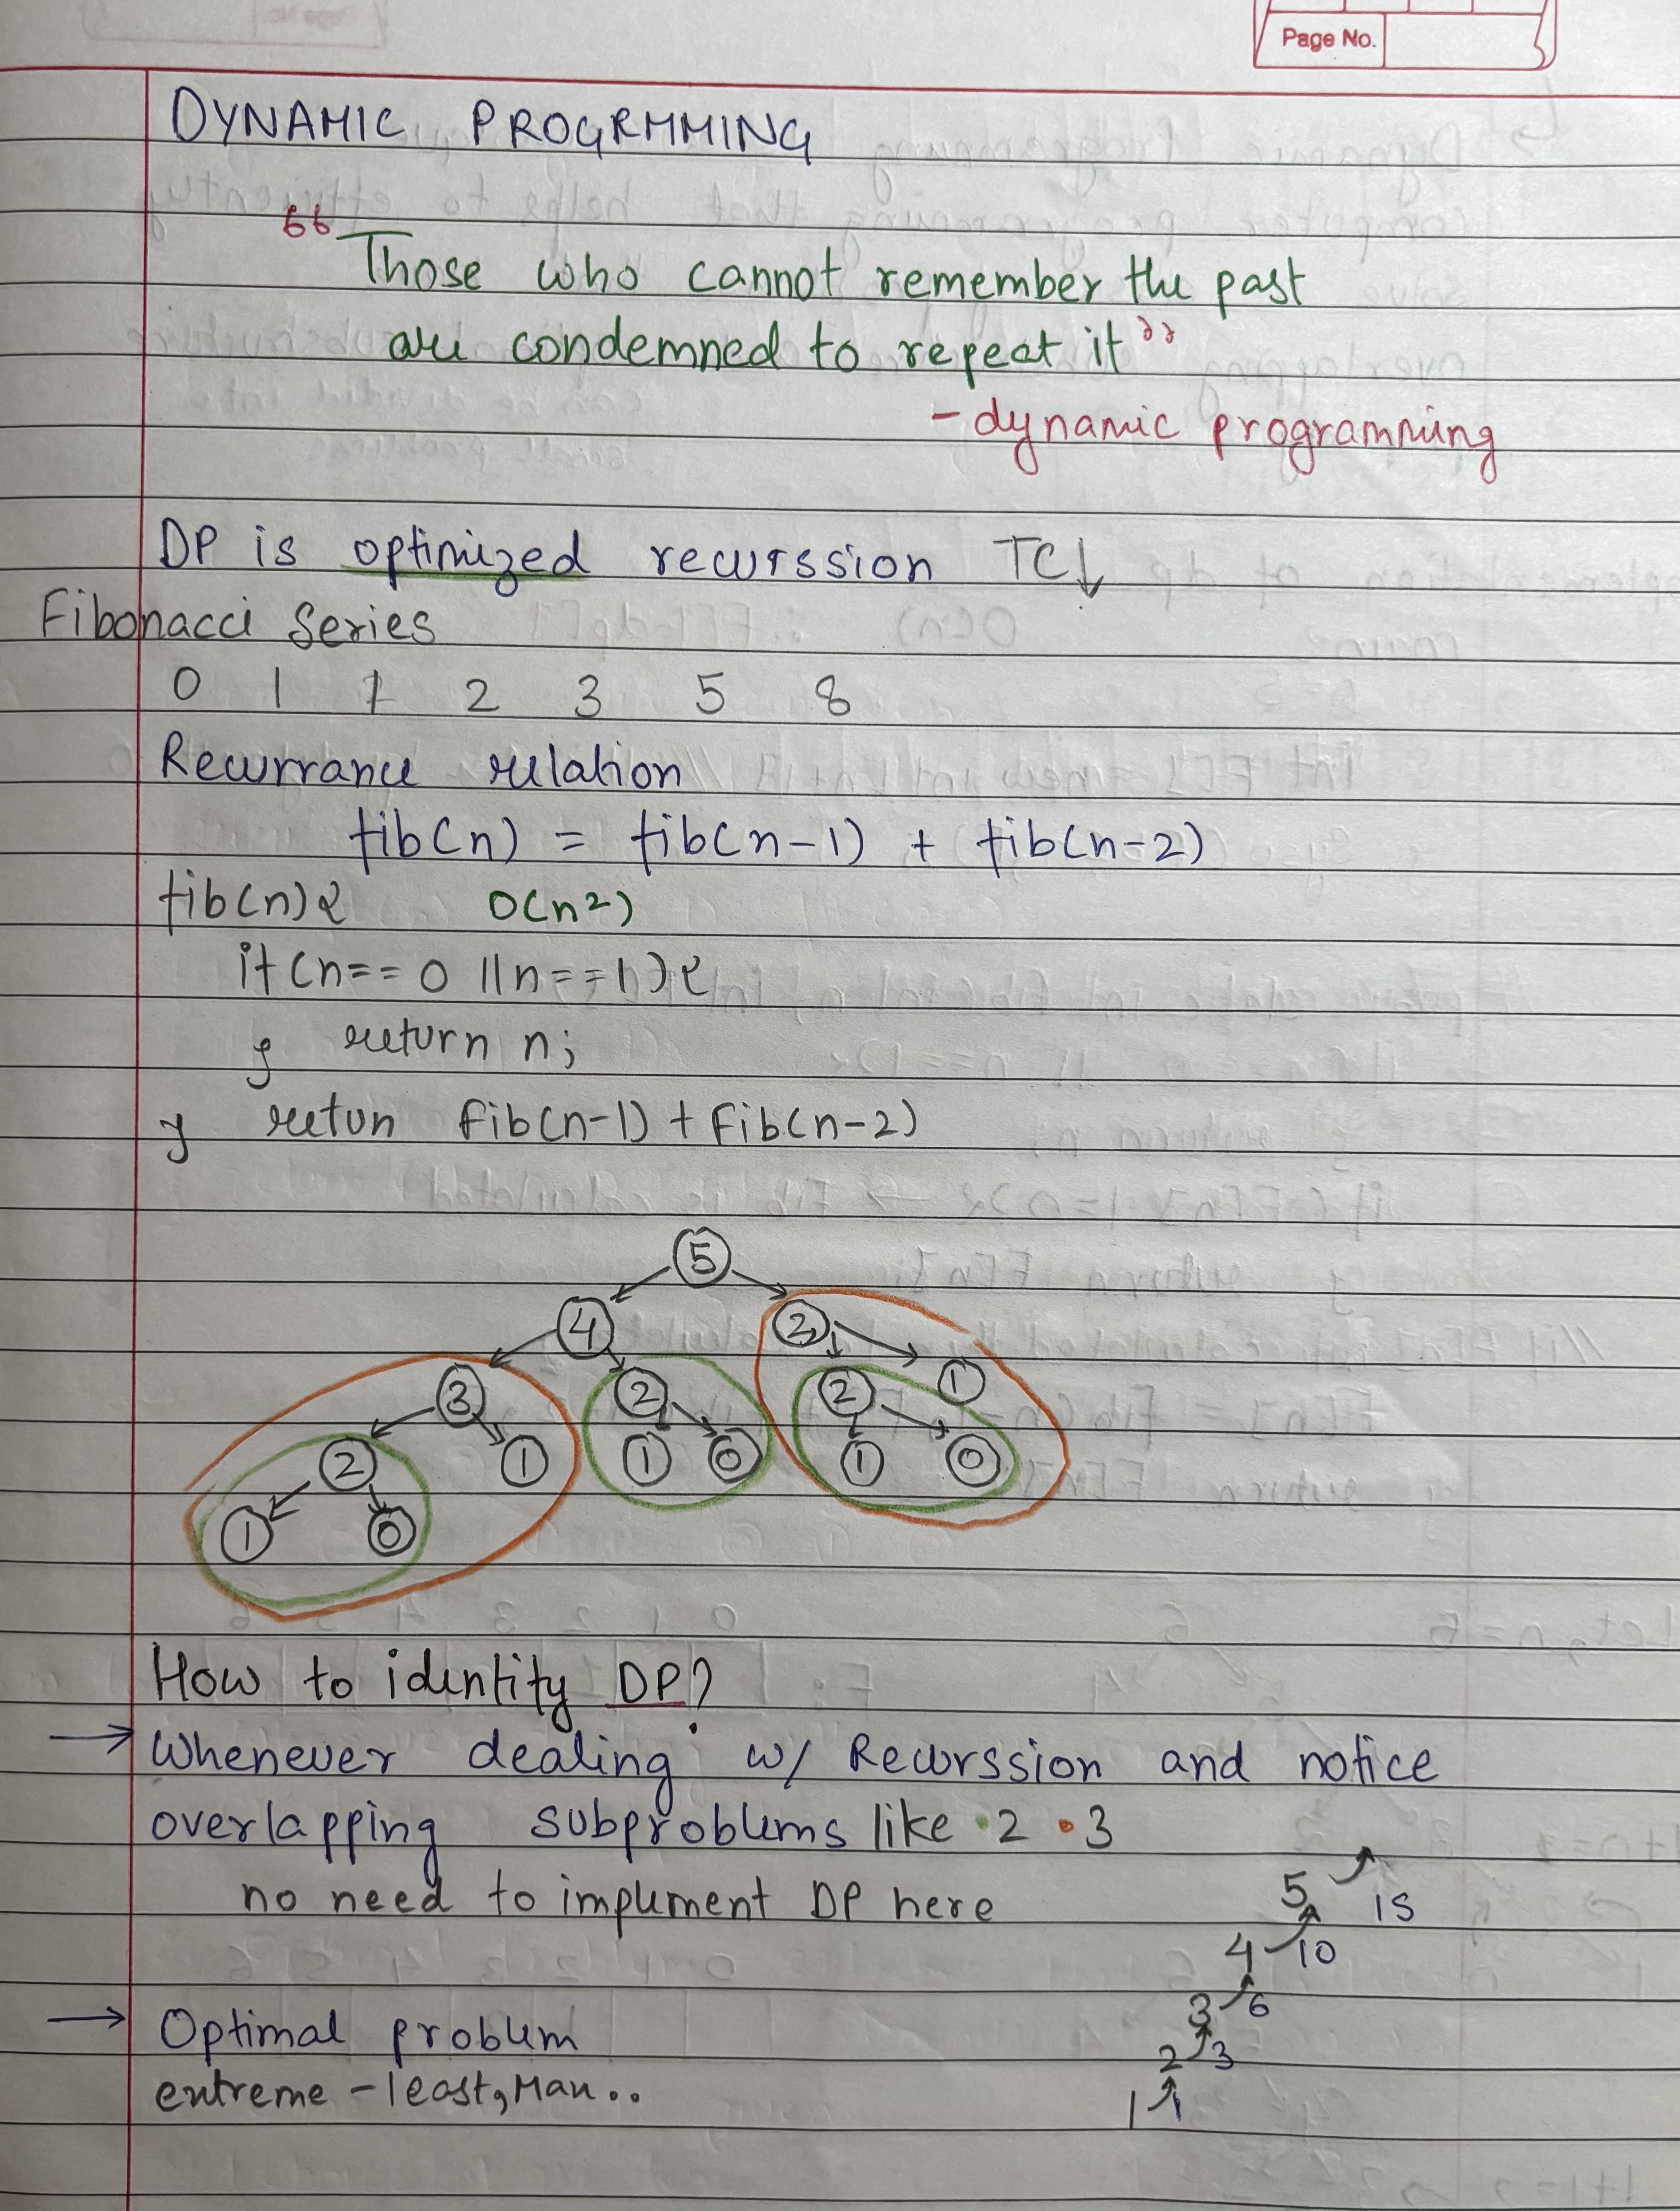 Page No.
DYNAMIC PROGRMMING
“Those who cannot remember the past
are condemned to repeat it”
- dynamic programming
DP is optimized recurssion TC↓
Fibonacci Series
0 1 1 2 3 5 8
Recurrance relation
fib(n) = fib(n-1) + fib(n-2)
fib(n){ O(n²)
if(n==0 ||n==1){
} return n;
} retun fib(n-1) + fib(n-2)
5
4 3
3 2 2 1
2 1 1 0 1 0
1 0
How to identity DP?
→ Whenever dealing w/ Recurssion and notice
overlapping subproblems like •2 •3
no need to implement DP here
5 15
4 10
3 6
→ Optimal problem
2 3
extreme - least, Max..
1 1